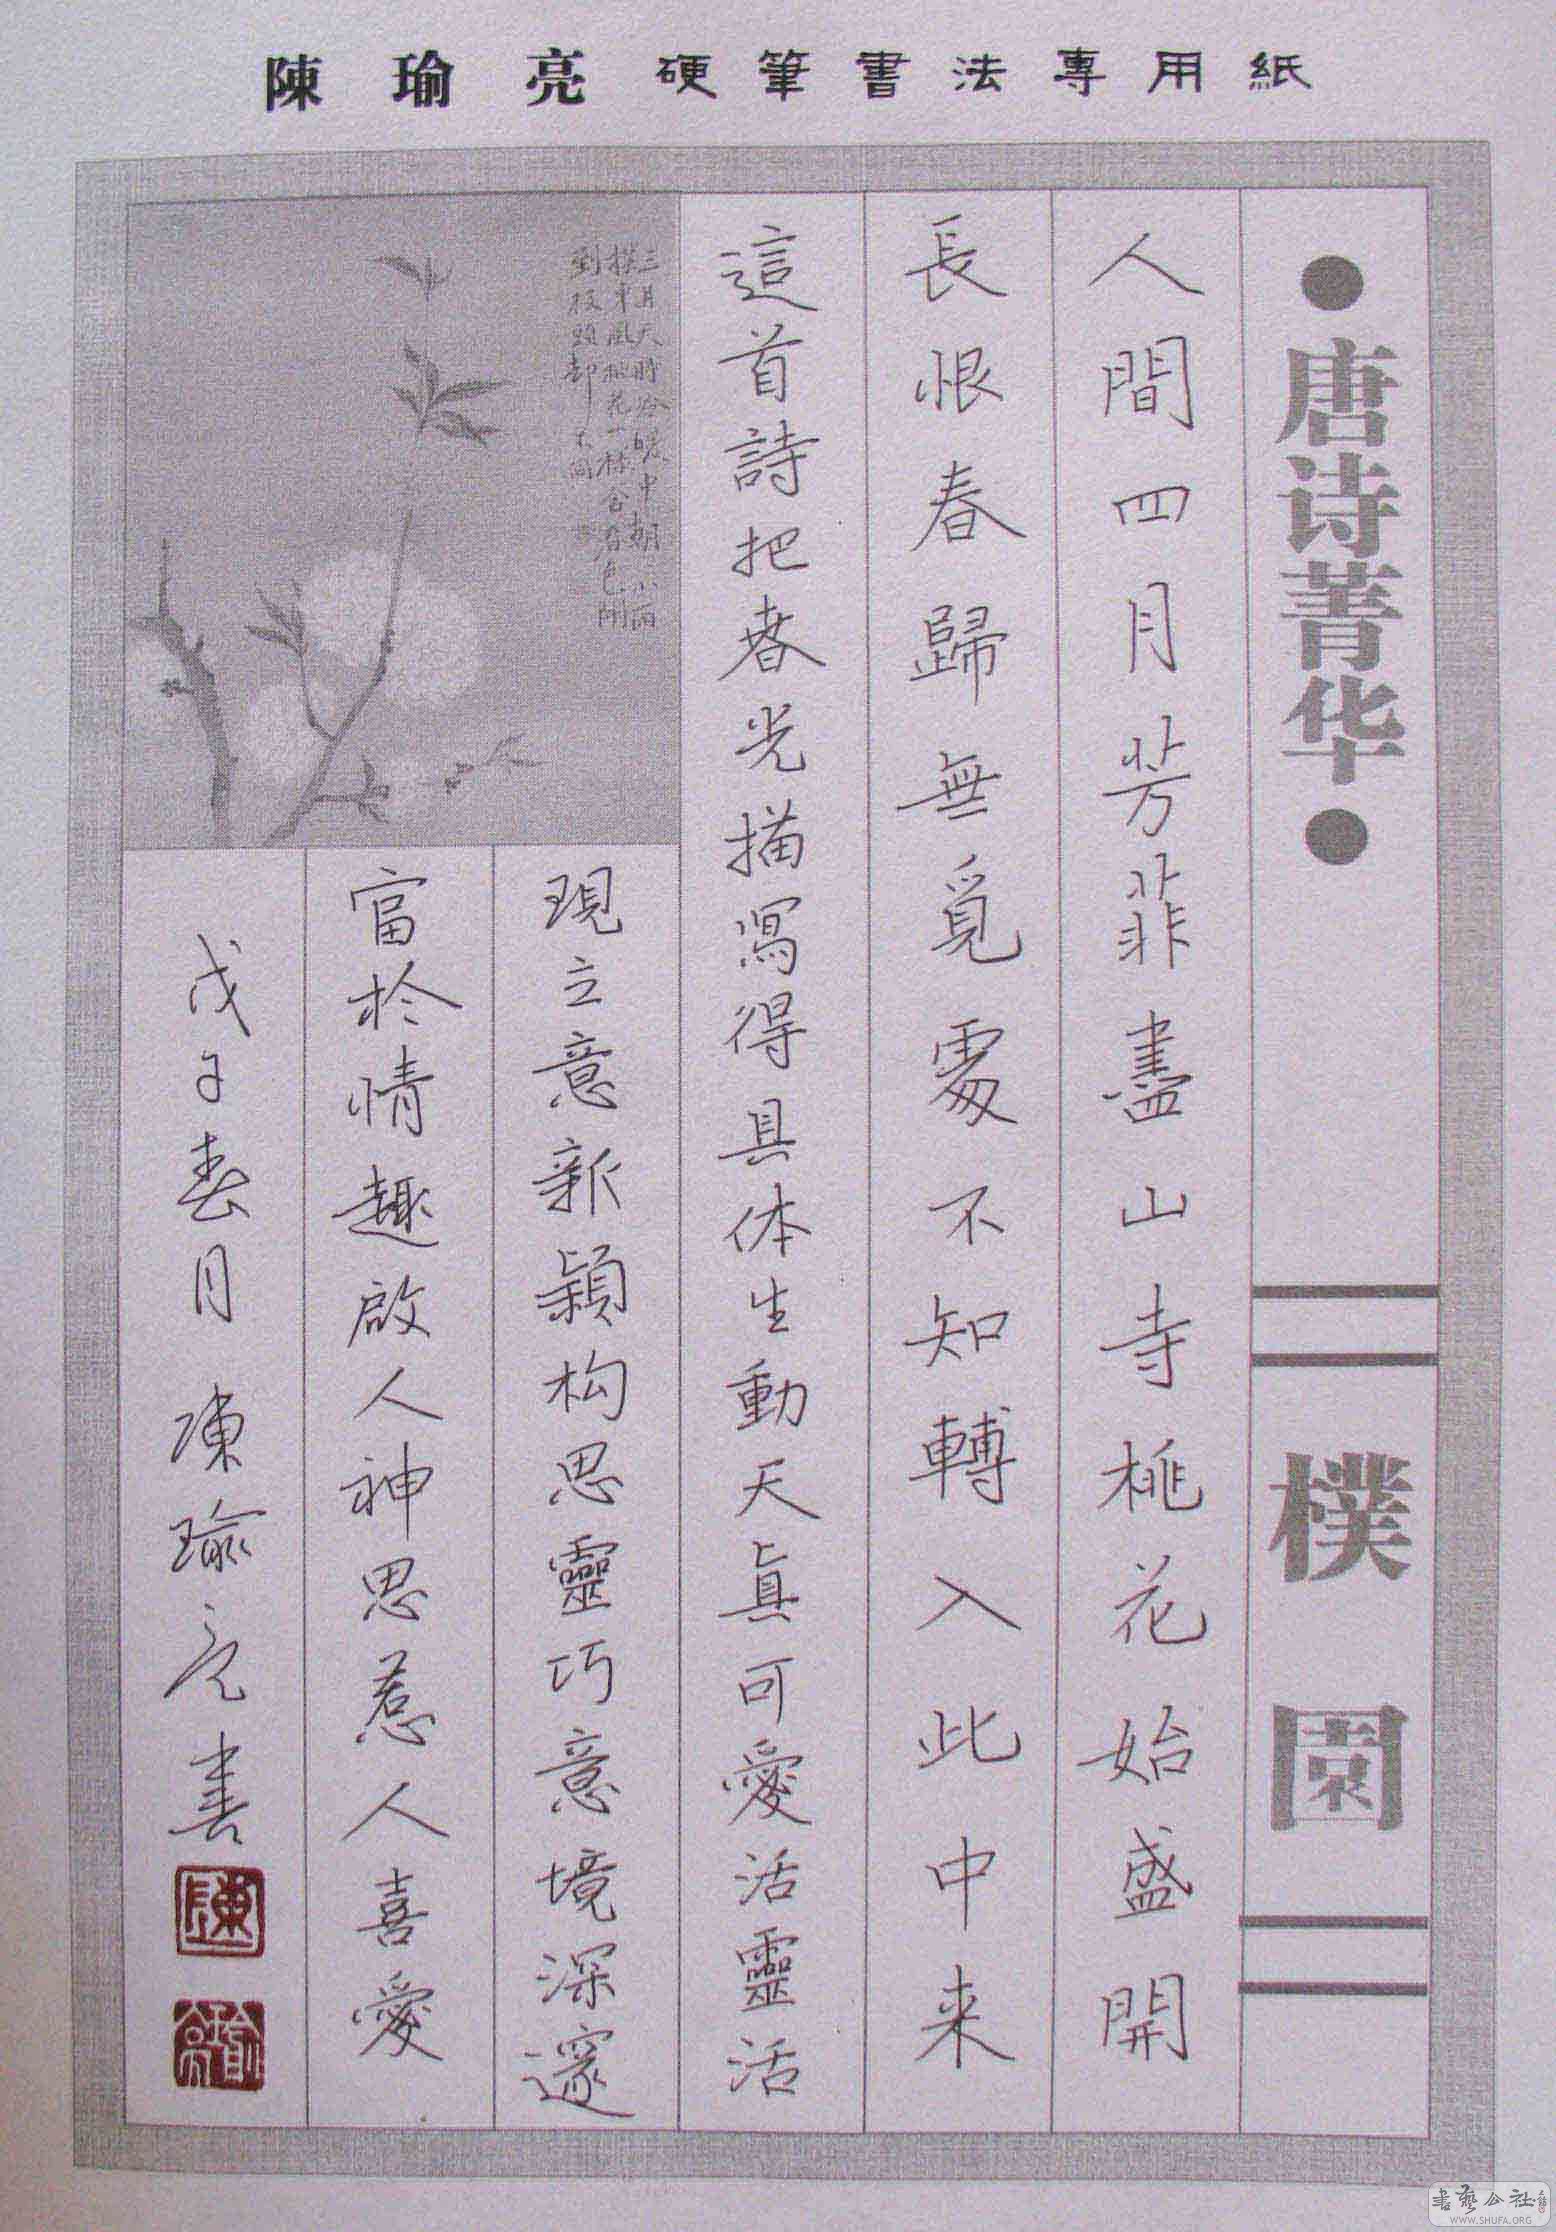 陳瑜亮硬筆書法專用紙
●唐诗菁华●
樸園
人間四月芳菲盡山寺桃花始盛開
長恨春歸無覓處不知轉入此中来
這首詩把春光描寫得具体生動天真可愛活靈活
現立意新穎构思靈巧意境深邃
富於情趣啟人神思惹人喜愛
戊子春月 陳瑜亮書
書藝公社
WWW.SHUFA.ORG